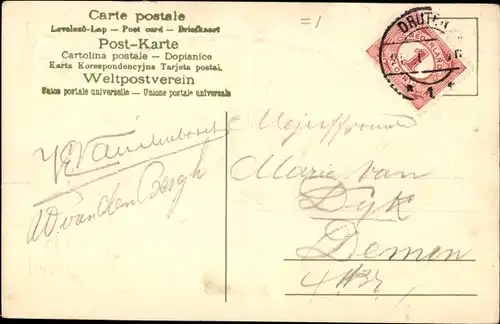 Carte postale
Levelező-Lap — Post card — Briefkaart
Post-Karte
Cartolina postale — Dopisnice
Karta Korespondencyjna Tarjeta postal.
Weltpostverein
Union postale universelle — Unione postale universale
=1
DRUTEN
1
NEDERLAND
Mejuffrouw
Marie van
Dyk
Demen
AD. van den Bergh